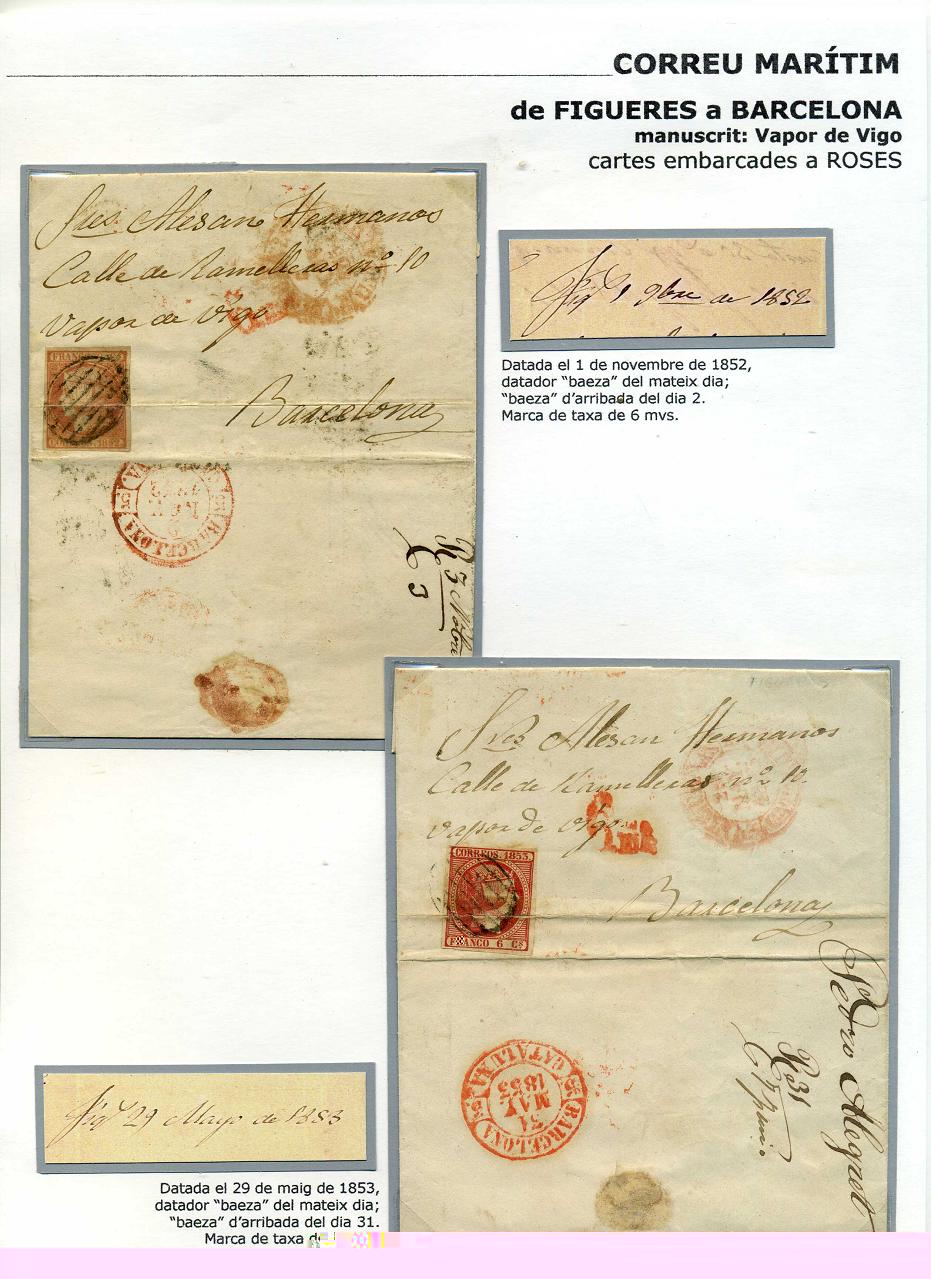 CORREU MARÍTIM
de FIGUERES a BARCELONA
manuscrit: Vapor de Vigo
cartes embarcades a ROSES
Sres Alesan Hermanos
Calle de Ramelleras nº 10
Vapor de Vigo
Barcelona
FRANCO 6 CS
CORREOS 1852
BARCELONA
R 3 Nobre
C 3
Figs 1 9bre de 1852
Datada el 1 de novembre de 1852,
datador “baeza” del mateix dia;
“baeza” d’arribada del dia 2.
Marca de taxa de 6 mvs.
FIGUERAS
Sres Alesan Hermanos
Calle de Ramelleras nº 10
vapor de vigo
Barcelona
CORREOS 1853
FRANCO 6 Cs
BARCELONA
31
MAY
1853
CATALUÑA
Pedro Alegret
R 31
Figs 29 Mayo de 1853
Datada el 29 de maig de 1853,
datador “baeza” del mateix dia;
“baeza” d’arribada del dia 31.
Marca de taxa de